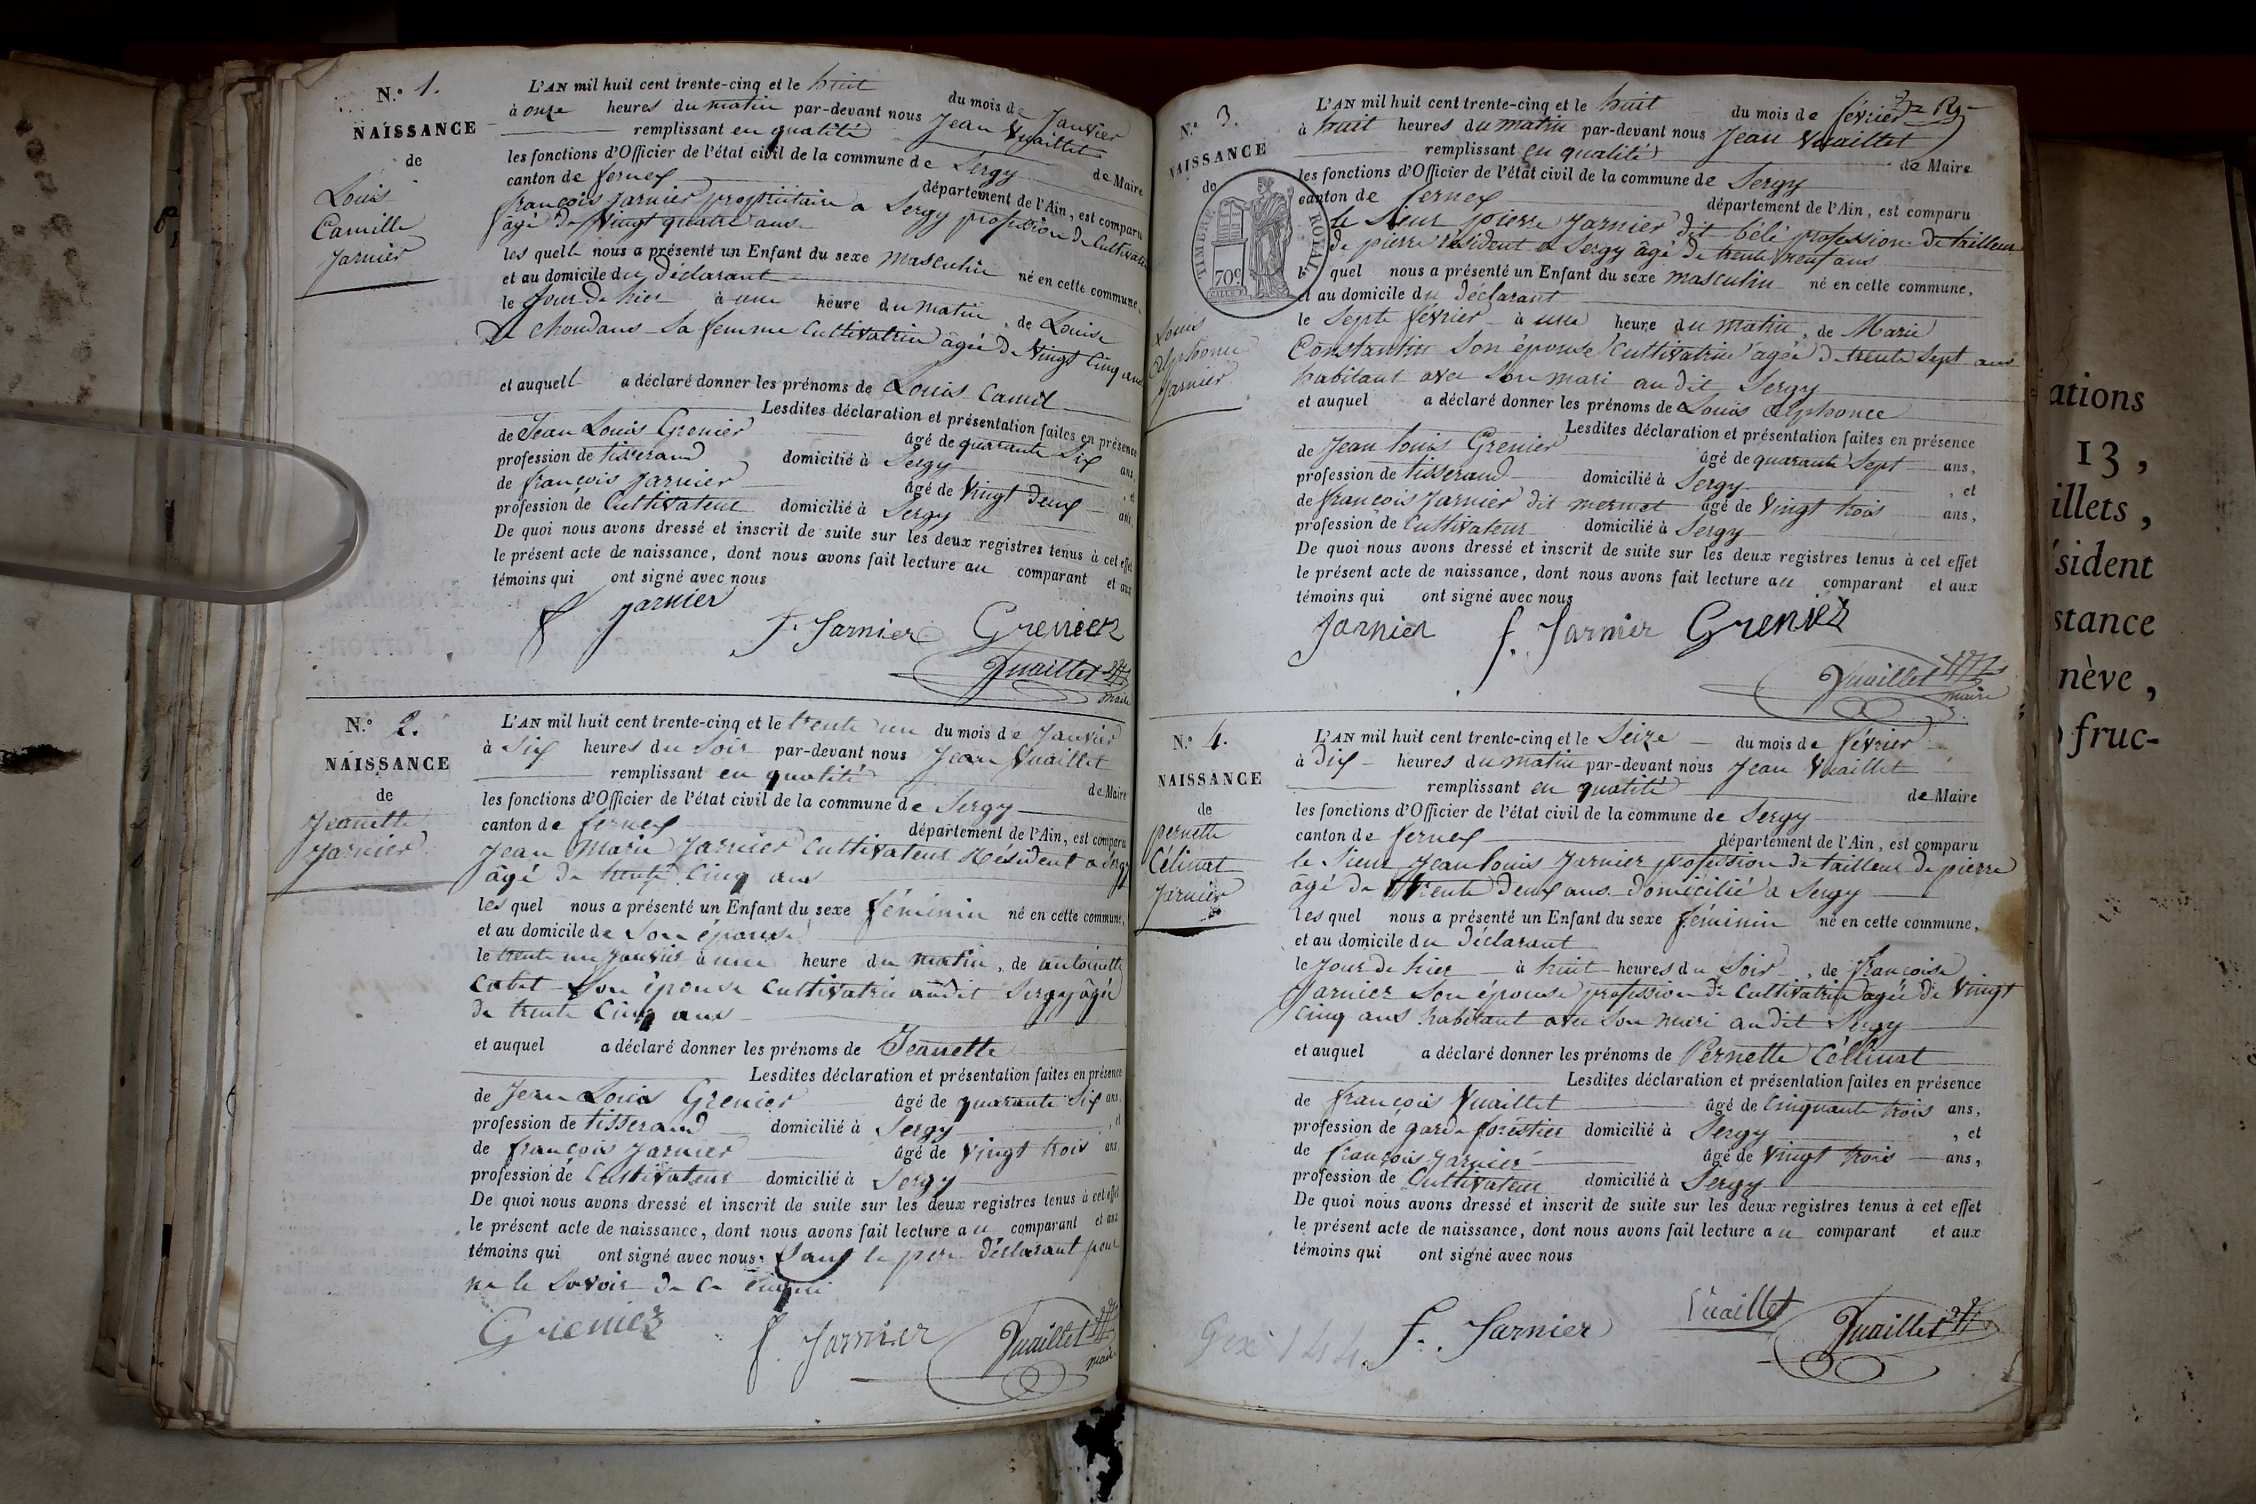 N.º 1.
NAISSANCE
de
Louis
Camille
Jarnier
L'AN mil huit cent trente-cinq et le huit du mois de Janvier
à onze heures du matin par-devant nous Jean Vuaillet
remplissant en qualité de Maire
les fonctions d'Officier de l'état civil de la commune de Sergy
canton de ferney département de l'Ain, est comparu
françois Jarnier propriétaire a Sergy profession de Cultivateur
âgé de Vingt quatre ans
les quell nous a présenté un Enfant du sexe masculin né en cette commune,
et au domicile du Déclarant
le Jour de hier à une heure du matin, de Louise
Choudans Sa femme Cultivatrice âgée de Vingt Cinq ans
et auquell a déclaré donner les prénoms de Louis Camil
Lesdites déclaration et présentation faites en présence
de Jean Louis Grenier âgé de quarante Six ans,
profession de tisserand domicilié à Sergy , et
de françois Jarnier âgé de Vingt Deux ans,
profession de Cultivateur domicilié à Sergy
De quoi nous avons dressé et inscrit de suite sur les deux registres tenus à cet effet
le présent acte de naissance, dont nous avons fait lecture au comparant et aux
témoins qui ont signé avec nous
f Jarnier f. Jarnier Grenier
Vuaillet
maire
N.º 2.
NAISSANCE
de
Jeanette
Jarnier
L'AN mil huit cent trente-cinq et le trente un du mois de Janvier
à Six heures du Soir par-devant nous Jean Vuaillet
remplissant en qualité de Maire
les fonctions d'Officier de l'état civil de la commune de Sergy
canton de ferney département de l'Ain, est comparu
Jean Marie Jarnier Cultivateur Résident a Sergy
âgé de trente Cinq ans
les quel nous a présenté un Enfant du sexe féminin né en cette commune,
et au domicile de Son épouse
le trente un Janvier à une heure du matin, de antoinette
Cabet Son épouse Cultivatrice audit Sergy âgée
de trente Cinq ans
et auquel a déclaré donner les prénoms de Jeanette
Lesdites déclaration et présentation faites en présence
de Jean Louis Grenier âgé de quarante Six ans,
profession de tisserand domicilié à Sergy , et
de françois Jarnier âgé de Vingt trois ans,
profession de Cultivateur domicilié à Sergy
De quoi nous avons dressé et inscrit de suite sur les deux registres tenus à cet effet
le présent acte de naissance, dont nous avons fait lecture au comparant et aux
témoins qui ont signé avec nous. Sauf le pere déclarant pour
ne le Savoir de ce Enquis
Grenier f. Jarnier Vuaillet
maire
N.º 3.
NAISSANCE
de
TIMBRE ROYAL
70c
Louis
Alphonce
Jarnier
L'AN mil huit cent trente-cinq et le huit du mois de février
à huit heures du matin par-devant nous Jean Vuaillet
remplissant en qualité de Maire
les fonctions d'Officier de l'état civil de la commune de Sergy
canton de ferney département de l'Ain, est comparu
le Sieur pierre Jarnier dit bélé profession de tailleur
de pierre résident a Sergy âgé de trente neuf ans
le quel nous a présenté un Enfant du sexe masculin né en cette commune,
et au domicile du Déclarant
le Sept février à une heure du matin, de Marie
Constantin Son épouse Cultivatrice âgée de trente Sept ans
habitant avec Son mari au dit Sergy
et auquel a déclaré donner les prénoms de Louis Alphonce
Lesdites déclaration et présentation faites en présence
de Jean Louis Grenier âgé de quarante Sept ans,
profession de tisserand domicilié à Sergy , et
de françois Jarnier dit mermet âgé de Vingt trois ans,
profession de Cultivateur domicilié à Sergy
De quoi nous avons dressé et inscrit de suite sur les deux registres tenus à cet effet
le présent acte de naissance, dont nous avons fait lecture au comparant et aux
témoins qui ont signé avec nous
Jarnier f. Jarnier Grenier
Vuaillet
maire
N.º 4.
NAISSANCE
de
pernette
Célinat
Jarnier
L'AN mil huit cent trente-cinq et le Seize du mois de février
à Dix heures du matin par-devant nous Jean Vuaillet
remplissant en qualité de Maire
les fonctions d'Officier de l'état civil de la commune de Sergy
canton de ferney département de l'Ain, est comparu
le Sieur Jean Louis Jarnier profession de tailleur de pierre
âgé de trente Deux ans domicilié a Sergy
les quel nous a présenté un Enfant du sexe féminin né en cette commune,
et au domicile du Déclarant
le Jour de hier à huit heures du Soir, de françoise
Jarnier Son épouse profession de Cultivatrice âgée de Vingt
Cinq ans habitant avec Son mari audit Sergy
et auquel a déclaré donner les prénoms de Pernette Célinat
Lesdites déclaration et présentation faites en présence
de françois Vuaillet âgé de Cinquante trois ans,
profession de garde forestier domicilié à Sergy , et
de françois Jarnier âgé de Vingt trois ans,
profession de Cultivateur domicilié à Sergy
De quoi nous avons dressé et inscrit de suite sur les deux registres tenus à cet effet
le présent acte de naissance, dont nous avons fait lecture au comparant et aux
témoins qui ont signé avec nous
Gex 144 f. Jarnier Vuaillet Vuaillet
ations
13,
illets,
ésident
stance
nève,
fruc-